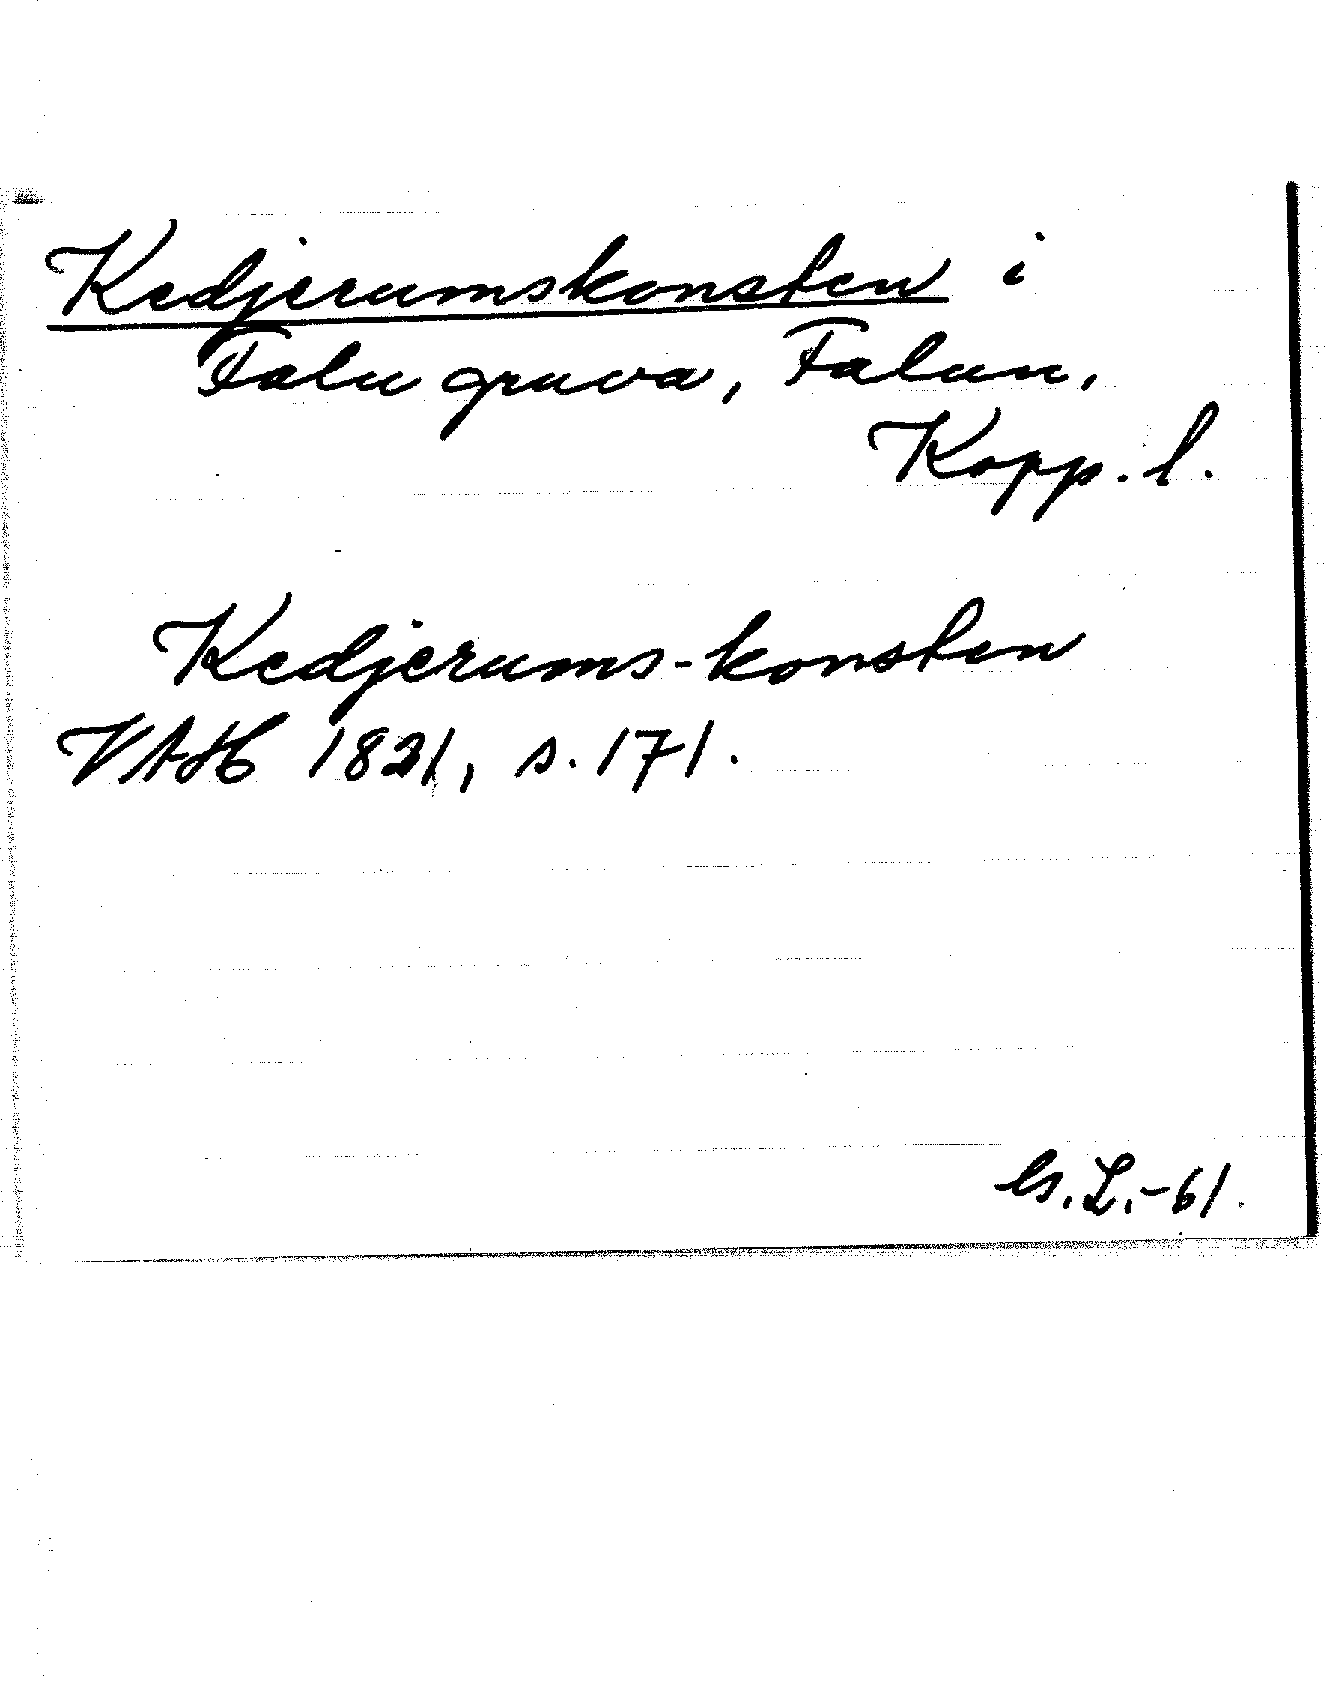 Kedjerumskonsten i
Falu gruva, Falun,
Kopp. l.
Kedjerums-konsten
VAH 1821, s. 171.
Cs. L. -61.